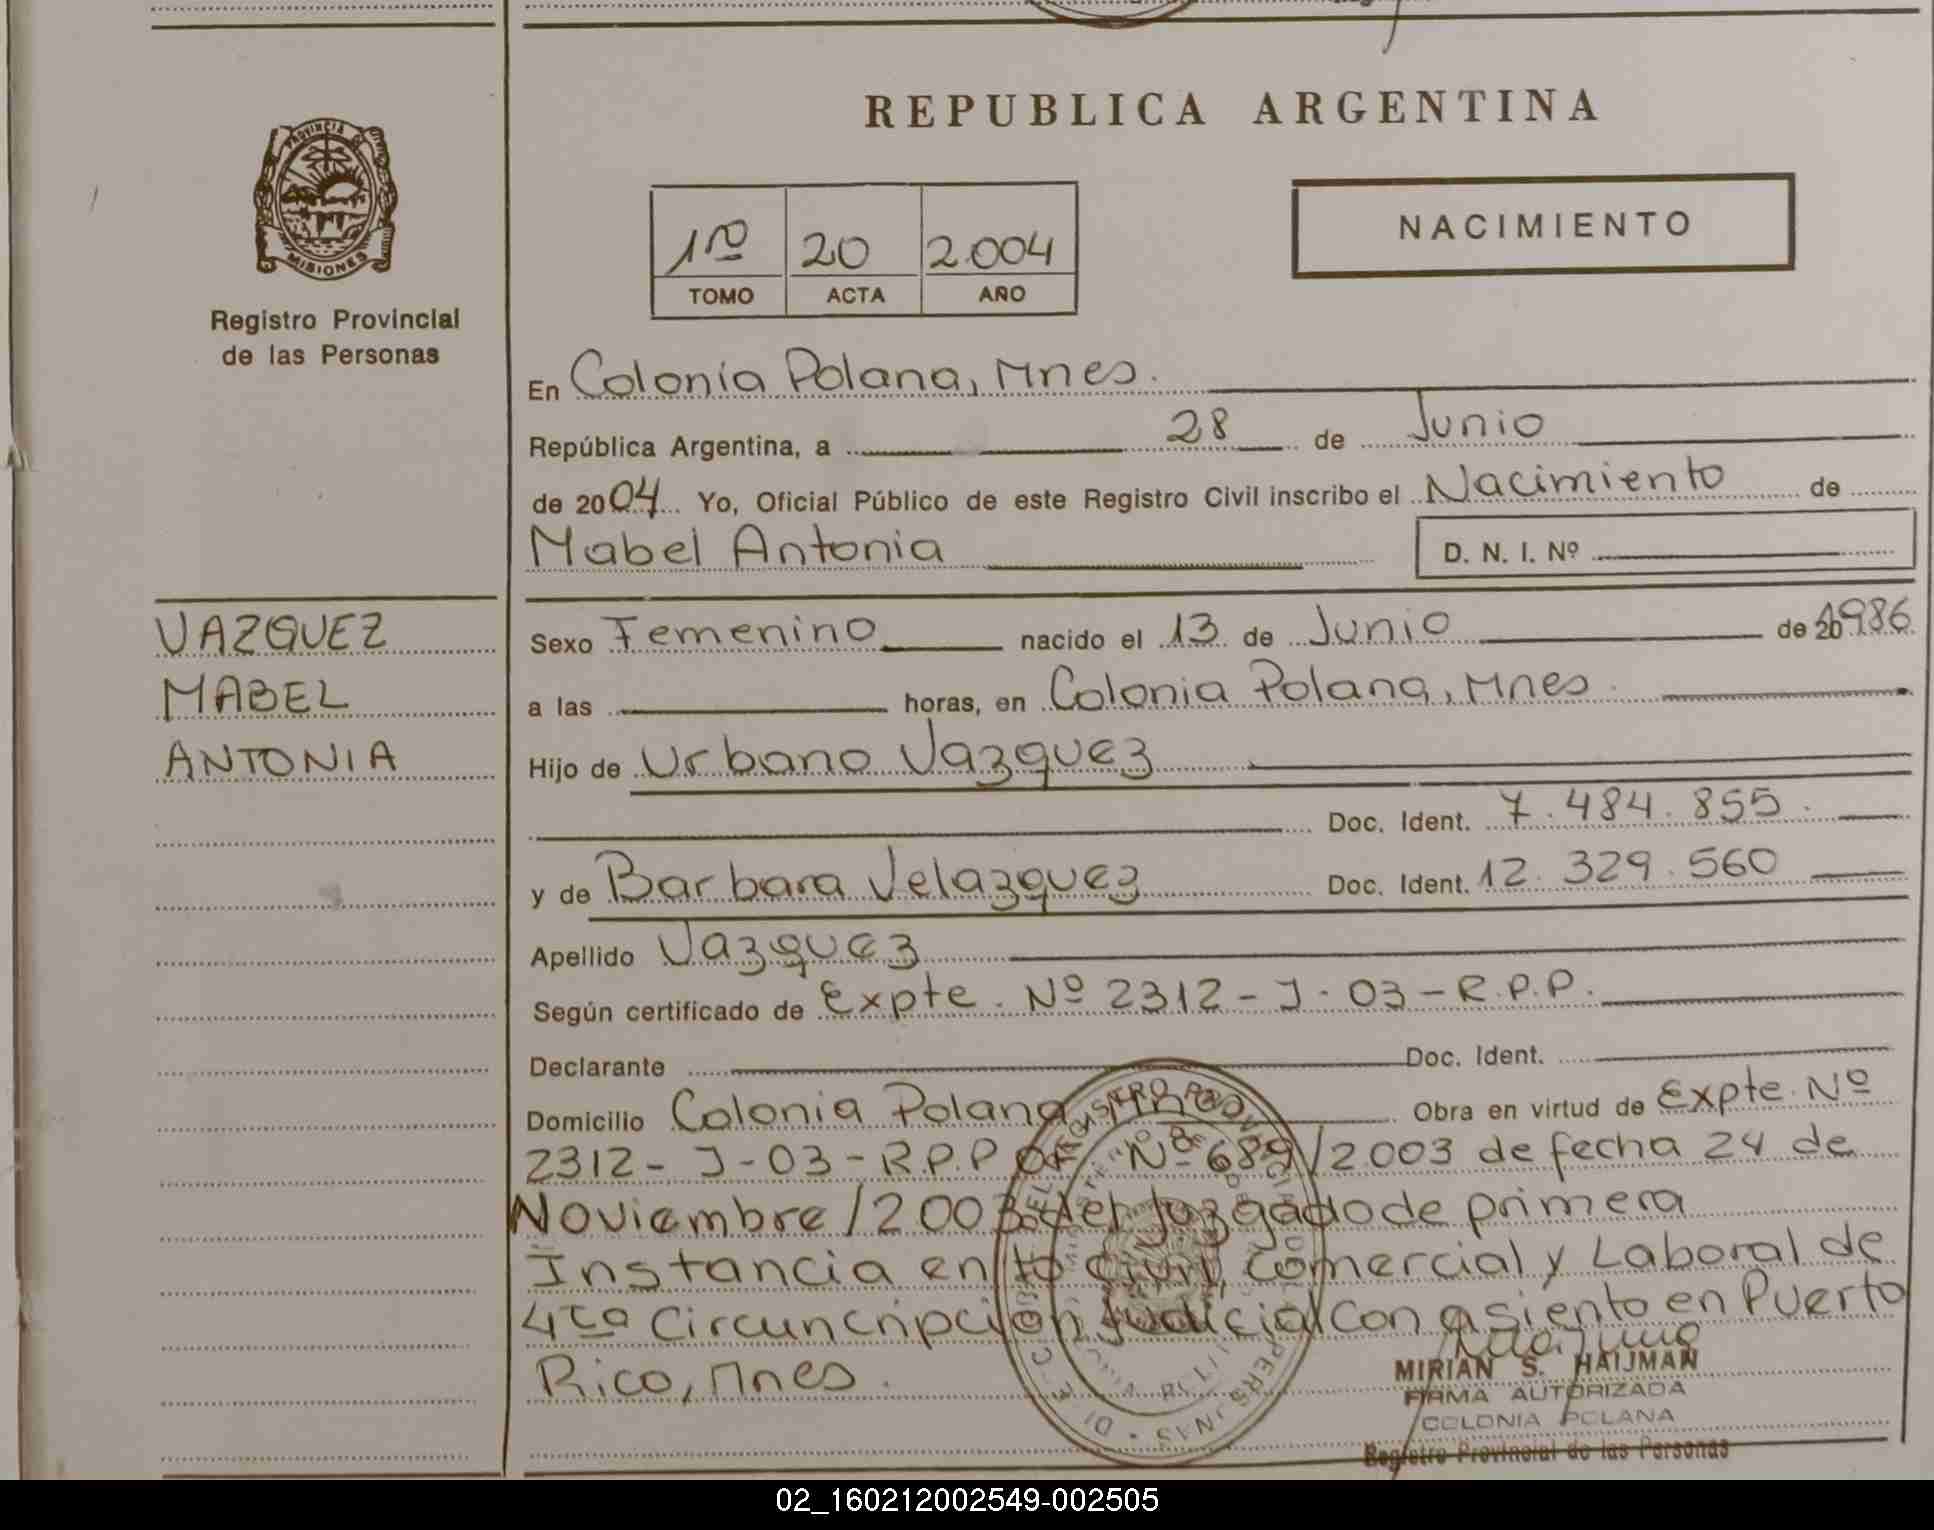 REPUBLICA ARGENTINA
PROVINCIA
MISIONES
Registro Provincial
de las Personas
1ro 20 2.004
TOMO ACTA AÑO
NACIMIENTO
En Colonia Polana, Mnes.
República Argentina, a 28 de Junio
de 2004 Yo, Oficial Público de este Registro Civil inscribo el Nacimiento de
Mabel Antonia D. N. I. Nº
VAZQUEZ
MABEL
ANTONIA
Sexo Femenino nacido el 13 de Junio de 1986
a las horas, en Colonia Polana, Mnes.
Hijo de Urbano Vazquez
Doc. Ident. 7.484.855.
y de Barbara Velazquez Doc. Ident. 12.329.560
Apellido Vazquez
Según certificado de Expte. Nº 2312-J-03-R.P.P.
Declarante Doc. Ident.
Domicilio Colonia Polana Mnes Obra en virtud de Expte. Nº
2312-J-03-R.P.P Of Nº 689/2003 de fecha 24 de
Noviembre/2003 del Juzgado de primera
Instancia en lo Civil, Comercial y Laboral de
4ta Circuncripción Judicial con asiento en Puerto
Rico, Mnes.
MIRIAN S. HAIJMAN
FIRMA AUTORIZADA
COLONIA POLANA
Registro Provincial de las Personas
02_160212002549-002505